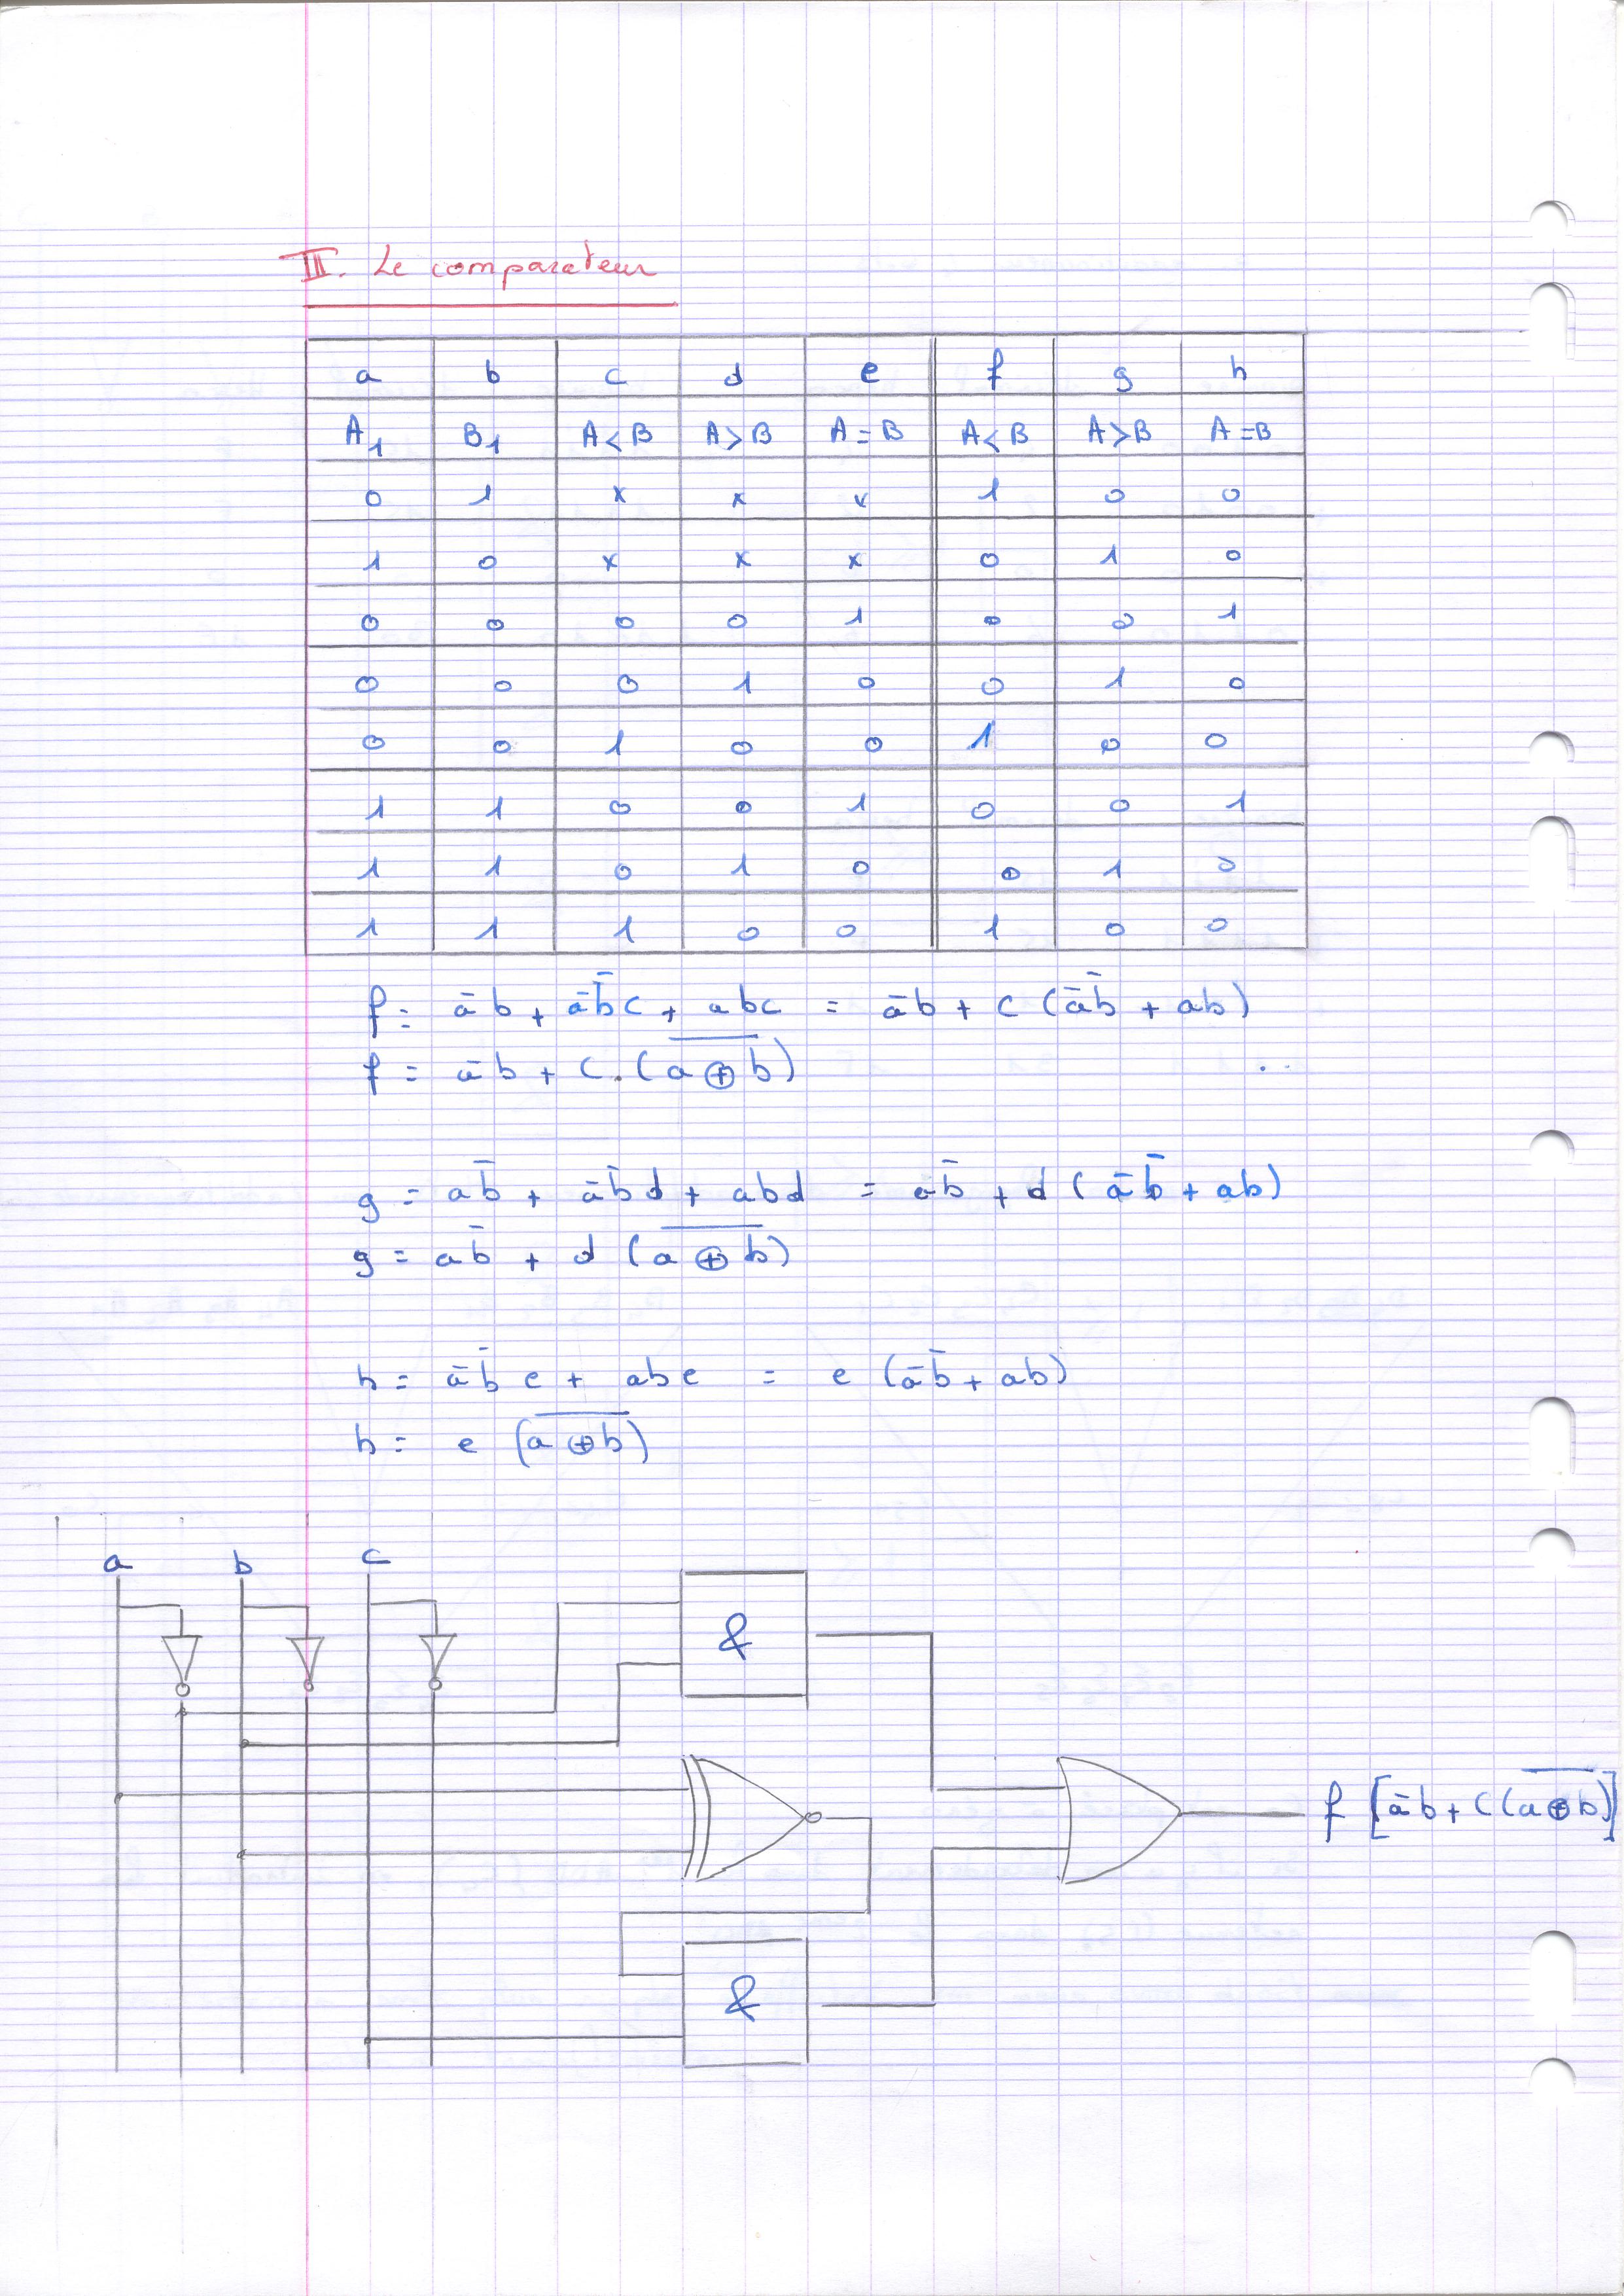 III. Le comparateur
a b c d e f g h
A₁ B₁ A<B A>B A=B A<B A>B A=B
0 1 x x x 1 0 0
1 0 x x x 0 1 0
0 0 0 0 1 0 0 1
0 0 0 1 0 0 1 0
0 0 1 0 0 1 0 0
1 1 0 0 1 0 0 1
1 1 0 1 0 0 1 0
1 1 1 0 0 1 0 0
f = a̅b + a̅b̅c + abc = a̅b + c (a̅b̅ + ab)
f = a̅b + c.(a̅ ̅⊕̅ ̅b̅)
g = ab̅ + a̅b̅d + abd = ab̅ + d (a̅b̅ + ab)
g = ab̅ + d (a̅ ̅⊕̅ ̅b̅)
h = a̅b̅e + abe = e (a̅b̅ + ab)
h = e (a̅ ̅⊕̅ ̅b̅)
a b c
&
f [a̅b + c(a̅ ̅⊕̅ ̅b̅)]
&